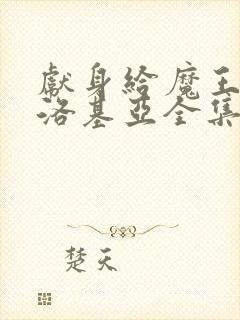 獻身給魔王伊
洛基亞全集
楚天